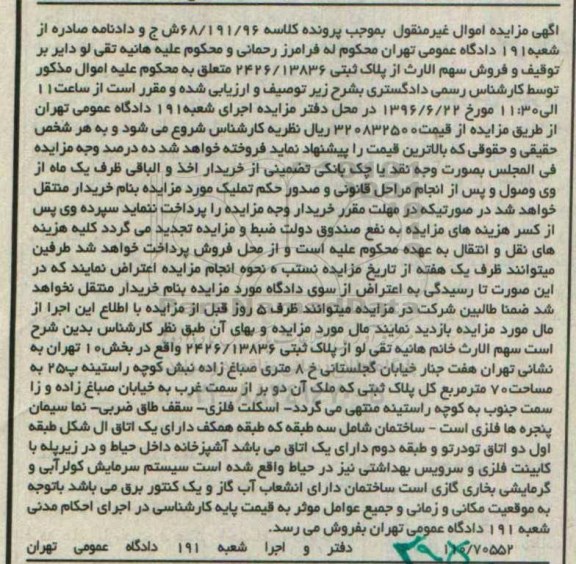 اگهی مزایده اموال غیرمنقول بموجب پرونده کلاسه ۶۸/۱۹۱/۹۶ش ج و دادنامه صادره از
شعبه۱۹۱ دادگاه عمومی تهران محکوم له فرامرز رحمانی و محکوم علیه هانیه تقی لو دایر بر
توقیف و فروش سهم الارث از پلاک ثبتی ۲۴۲۶/۱۳۸۳۶ متعلق به محکوم علیه اموال مذکور
توسط کارشناس رسمی دادگستری بشرح زیر توصیف و ارزیابی شده و مقرر است از ساعت۱۱
الی۱۱:۳۰ مورخ ۱۳۹۶/۶/۲۲ در محل دفتر مزایده اجرای شعبه۱۹۱ دادگاه عمومی تهران
از طریق مزایده از قیمت۳۲۰۸۳۲۵۰۰ ریال نظریه کارشناس شروع می شود و به هر شخص
حقیقی و حقوقی که بالاترین قیمت را پیشنهاد نماید فروخته خواهد شد ده درصد وجه مزایده
فی المجلس بصورت وجه نقد یا چک بانکی تضمینی از خریدار اخذ و الباقی ظرف یک ماه از
وی وصول و پس از انجام مراحل قانونی و صدور حکم تملیک مورد مزایده بنام خریدار منتقل
خواهد شد در صورتیکه در مهلت مقرر خریدار وجه مزایده را پرداخت ننماید سپرده وی پس
از کسر هزینه های مزایده به نفع صندوق دولت ضبط و مزایده تجدید می گردد کلیه هزینه
های نقل و انتقال به عهده محکوم علیه است و از محل فروش پرداخت خواهد شد طرفین
میتوانند ظرف یک هفته از تاریخ مزایده نستب ه نحوه انجام مزایده اعتراض نمایند که در
این صورت تا رسیدگی به اعتراض از سوی دادگاه مورد مزایده بنام خریدار منتقل نخواهد
شد ضمنا طالبین شرکت در مزایده میتوانند ظرف ۵ روز قبل از مزایده با اطلاع این اجرا از
مال مورد مزایده بازدید نمایند مال مورد مزایده و بهای آن طبق نظر کارشناس بدین شرح
است سهم الارث خانم هانیه تقی لو از پلاک ثبتی ۲۴۲۶/۱۳۸۳۶ واقع در بخش۱۰ تهران به
نشانی تهران هفت چنار خیابان گجلستانی خ ۸ متری صباغ زاده نبش کوچه راستینه پ۲۵ به
مساحت۷۰ مترمربع کل پلاک ثبتی که ملک آن دو بر از سمت غرب به خیابان صباغ زاده و زا
سمت جنوب به کوچه راستینه منتهی می گردد- اسکلت فلزی- سقف طاق ضربی- نما سیمان
پنجره ها فلزی است - ساختمان شامل سه طبقه که طبقه همکف دارای یک اتاق ال شکل طبقه
اول دو اتاق تودرتو و طبقه دوم دارای یک اتاق می باشد آشپزخانه داخل حیاط و در زیرپله با
کابینت فلزی و سرویس بهداشتی نیز در حیاط واقع شده است سیستم سرمایش کولرآبی و
گرمایشی بخاری گازی است ساختمان دارای انشعاب آب گاز و یک کنتور برق می باشد باتوجه
به موقعیت مکانی و زمانی و جمیع عوامل موثر به قیمت پایه کارشناسی در اجرای احکام مدنی
شعبه ۱۹۱ دادگاه عمومی تهران بفروش می رسد.
۱۱۰/۷۰۵۵۲ دفتر و اجرا شعبه ۱۹۱ دادگاه عمومی تهران